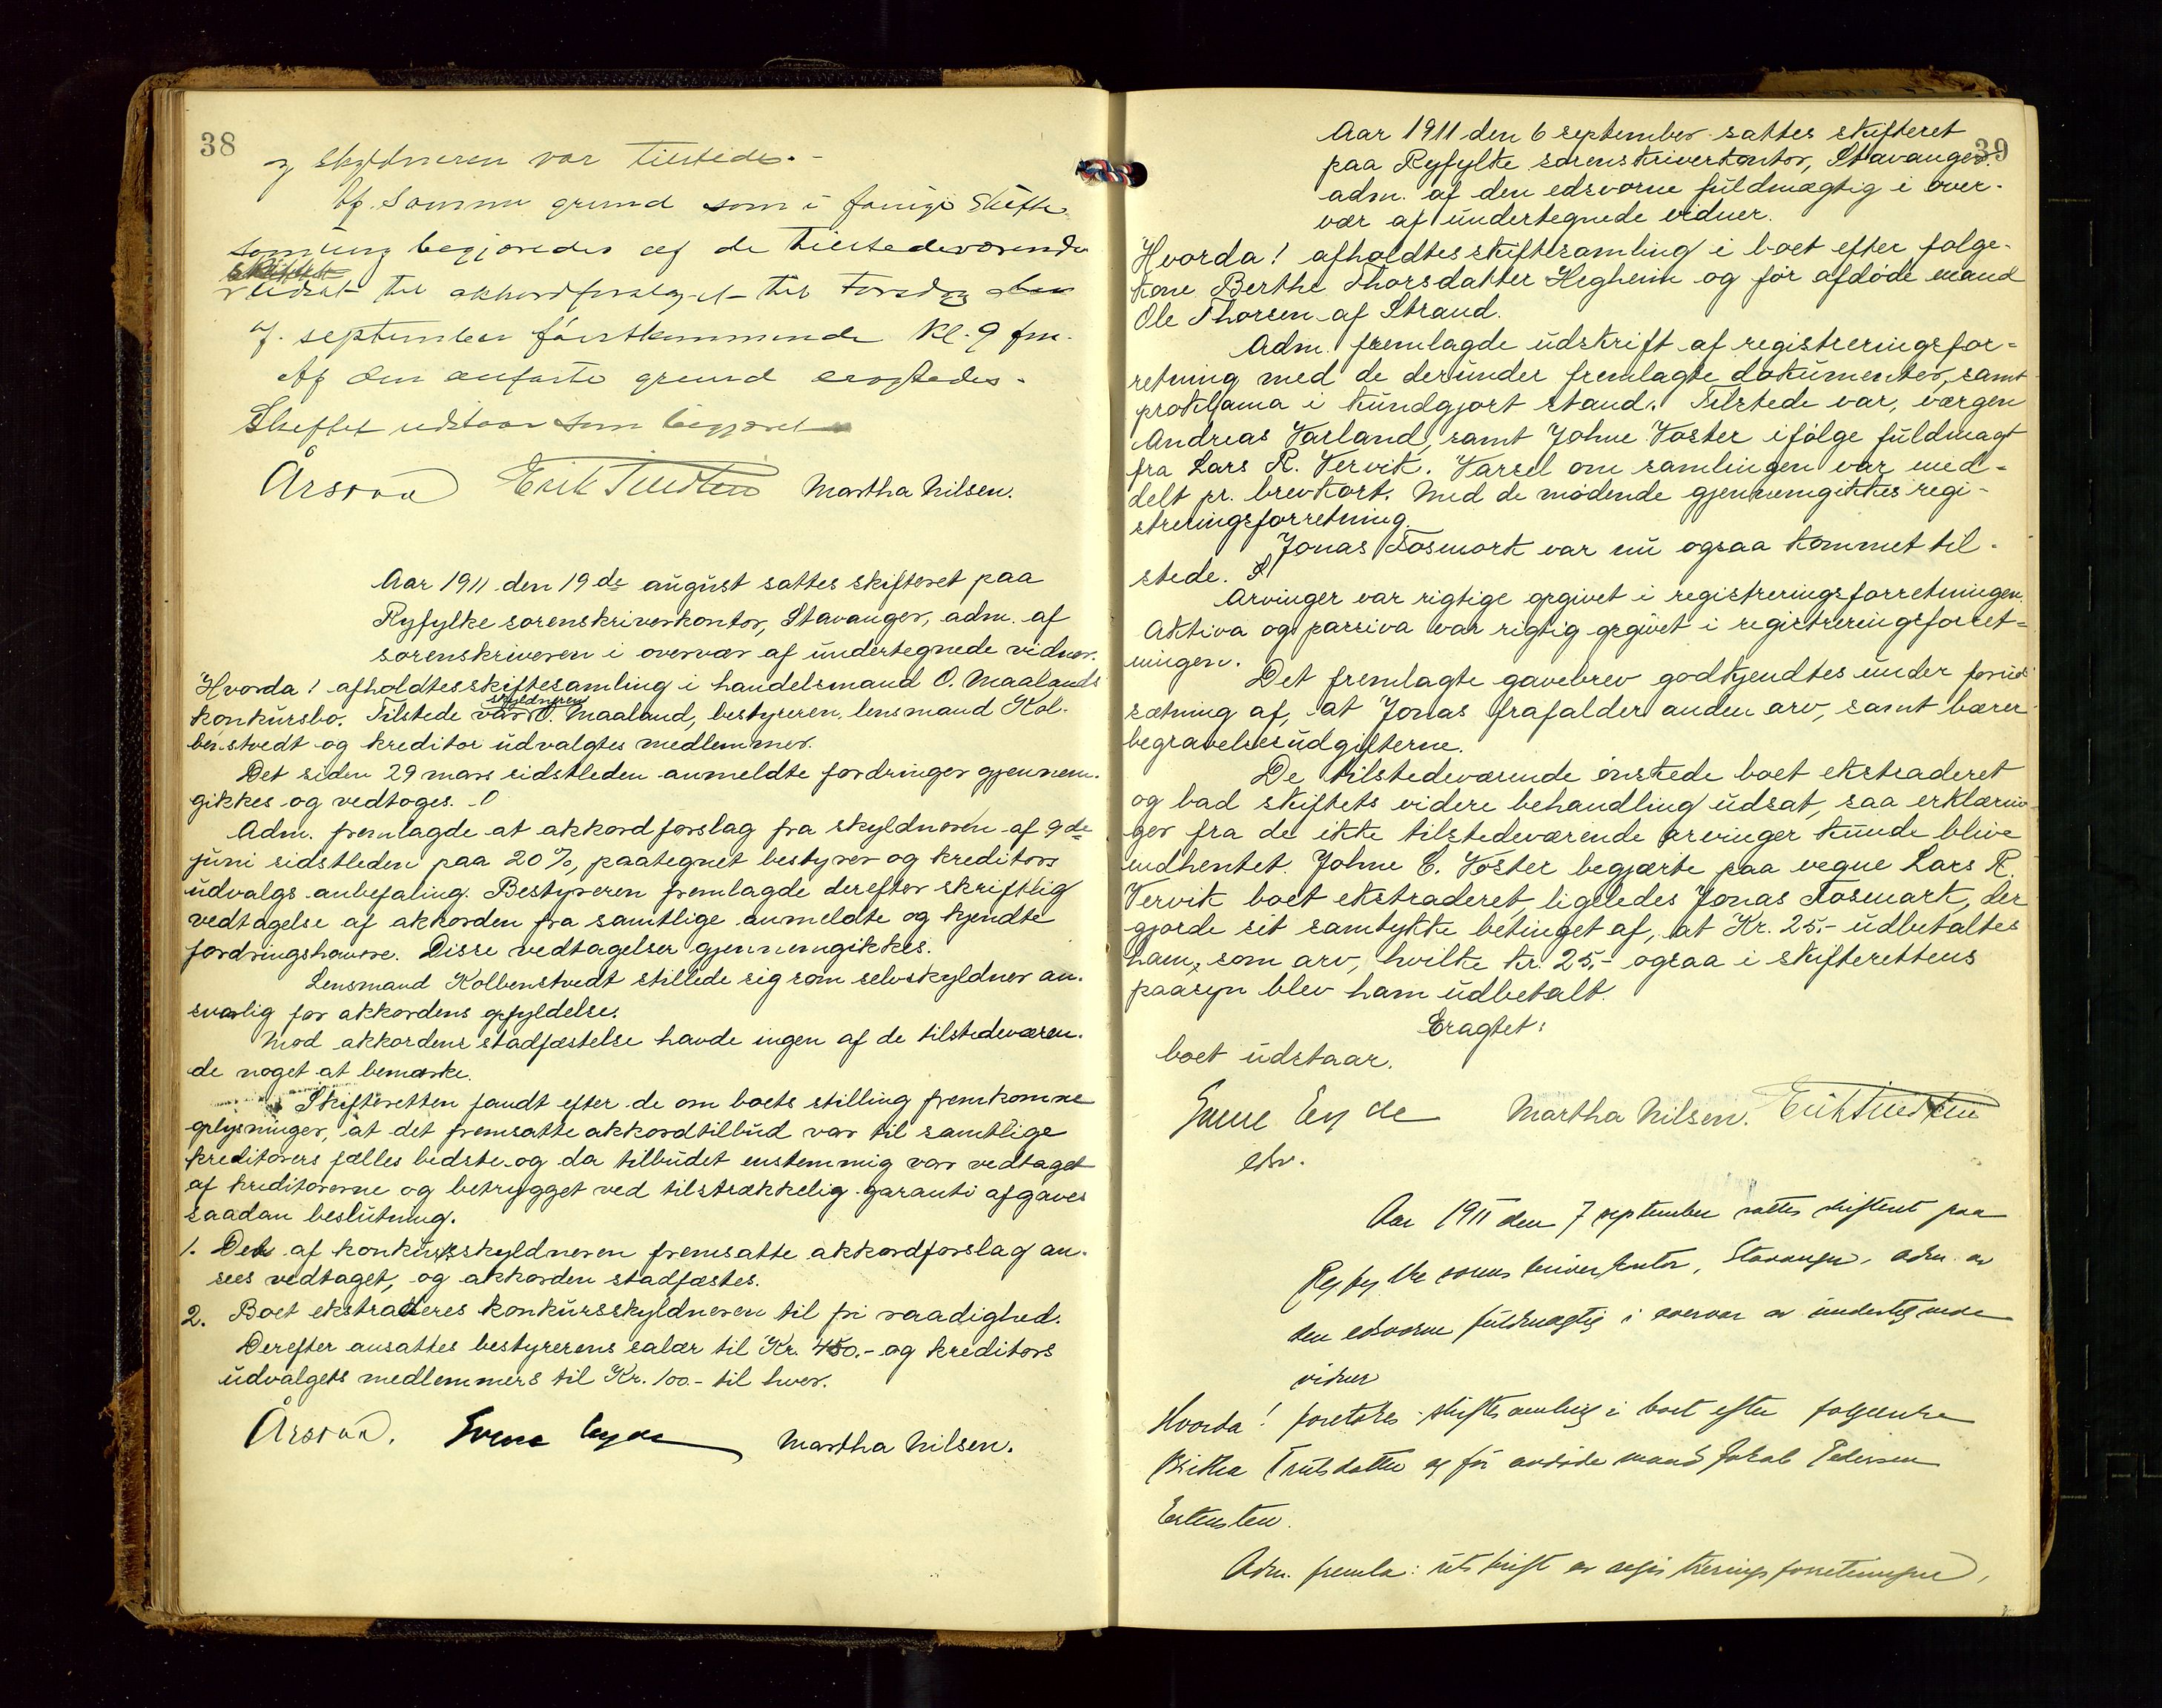 38
og skyldneren var tilstede.-
Af samme grund som i forrige skifte
samling begjæredes af de tilstedeværende
udsat til akkordforslaget til Torsdag den
7. september førstkommende kl. 9 fm.
Af den anførte grund eragtedes.
Skiftet udstaar som begjæret
Årsvoll Erik Tuedten Martha Nilsen.
Aar 1911 den 19de august sattes skifteret paa
Ryfylke sorenskriverkontor, Stavanger, adm. af
sorenskriveren i overvær af undertegnede vidner.
Hvorda! afholdtes skiftesamling i handelsmand O. Maalands
skyldneren
konkursbo. Tilstede var O. Maaland, bestyreren, lensmand Kol-
benstvedt og kreditor udvalgtes medlemmer.
Det siden 29 mars sidstleden anmeldte fordringer gjennem-
gikkes og vedtoges.
Adm. fremlagde at akkordforslag fra skyldneren af 9de
juni sidstleden paa 20%, paategnet bestyrer og kreditors
udvalgs anbefaling. Bestyreren fremlagde derefter skriftlig
vedtagelse af akkorden fra samtlige anmeldte og kjendte
fordringshavere. Disse vedtagelser gjennemgikkes.
Lensmand Kolbenstvedt stillede sig som selvskyldner an-
svarlig for akkordens opfyldelse.
Mod akkordens stadfæstelse havde ingen af de tilstedeværen-
de noget at bemærke.
Skifteretten fandt efter de om boets stilling fremkomne
oplysninger, at det fremsatte akkordtilbud var til samtlige
kreditorers fælles bedste og da tilbudet enstemmig var vedtaget
af kreditorerne og betrygget ved tilstrækkelig garanti afgaves
saadan beslutning.
1. Det af konkursskyldneren fremsatte akkordforslag an-
sees vedtaget, og akkorden stadfæstes.
2. Boet ekstraderes konkursskyldneren til fri raadighed.
Derefter ansattes bestyrerens salær til Kr. 450.- og kreditors
udvalgets medlemmers til Kr. 100.- til hver.
Årsvoll. Svene Eyde Martha Nilsen.
39
Aar 1911 den 6 september sattes skifteret
paa Ryfylke sorenskriverkontor, Stavanger.
adm. af den edsvorne fuldmægtig i over-
vær af undertegnede vidner.
Hvorda! afholdtes skiftesamling i boet efter følge-
kone Berthe Thorsdatter Hegheim og før afdøde mand
Ole Thorsen af Strand.
Adm. fremlagde udskrift af registreringsfor-
retning med de derunder fremlagte dokumenter, samt
proklama i kundgjort stand. Tilstede var, værgen
Andreas Varland, samt Johne Voster ifølge fuldmagt
fra Lars R. Vervik. Varsel om samlingen var med-
delt pr. brevkort. Med de mødende gjennemgikkes regi-
streringsforretning.
Jonas Fosmork var nu ogsaa kommet til-
stede.
Arvinger var rigtige opgivet i registreringsforretningen.
Aktiva og passiva var rigtig opgivet i registreringsforret-
ningen.
Det fremlagte gavebrev godkjendtes under forud-
sætning af, at Jonas frafalder anden arv, samt bærer
begravelsesudgifterne.
De tilstedeværende ønskede boet ekstraderet
og bad skiftets videre behandling udsat, saa erklærin-
ger fra de ikke tilstedeværende arvinger kunde blive
indhentet. Johne C. Voster begjærte paa vegne Lars R.
Vervik boet ekstraderet ligeledes Jonas Fosmark, der
gjorde sit samtykke betinget af, at Kr. 25.- udbetaltes
ham, som arv, hvilke kr. 25,- ogsaa i skifterettens
paasyn blev ham udbetalt.
Eragtet:
boet udstaar.
Svene Eyde Martha Nilsen. Erik Tuedten
edsv.
Aar 1911 den 7 september sattes skifteret paa
Ryfylke sorenskriverkontor, Stavanger, adm. av
den edsvorne fuldmægtig i overvær av undertegnede
vidner
Hvorda! foretokes skiftesamling i boet efter følgekone
Trulsdatter og før avdøde mand Jakob Pedersen
Adm. fremla: utskrift av registreringsforretningen,